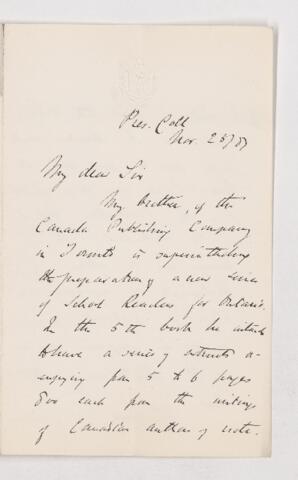 Pres. Coll
Nov. 25/87
My dear Sir
My brother, of the
Canada Publishing Company
in Toronto is superintending
the preparation of a new series
of School Readers for Ontario.
In the 5th book he intends
to have a series of extracts
from 5 to 6 pages
8vo each from the writings
of Canadian authors of note.